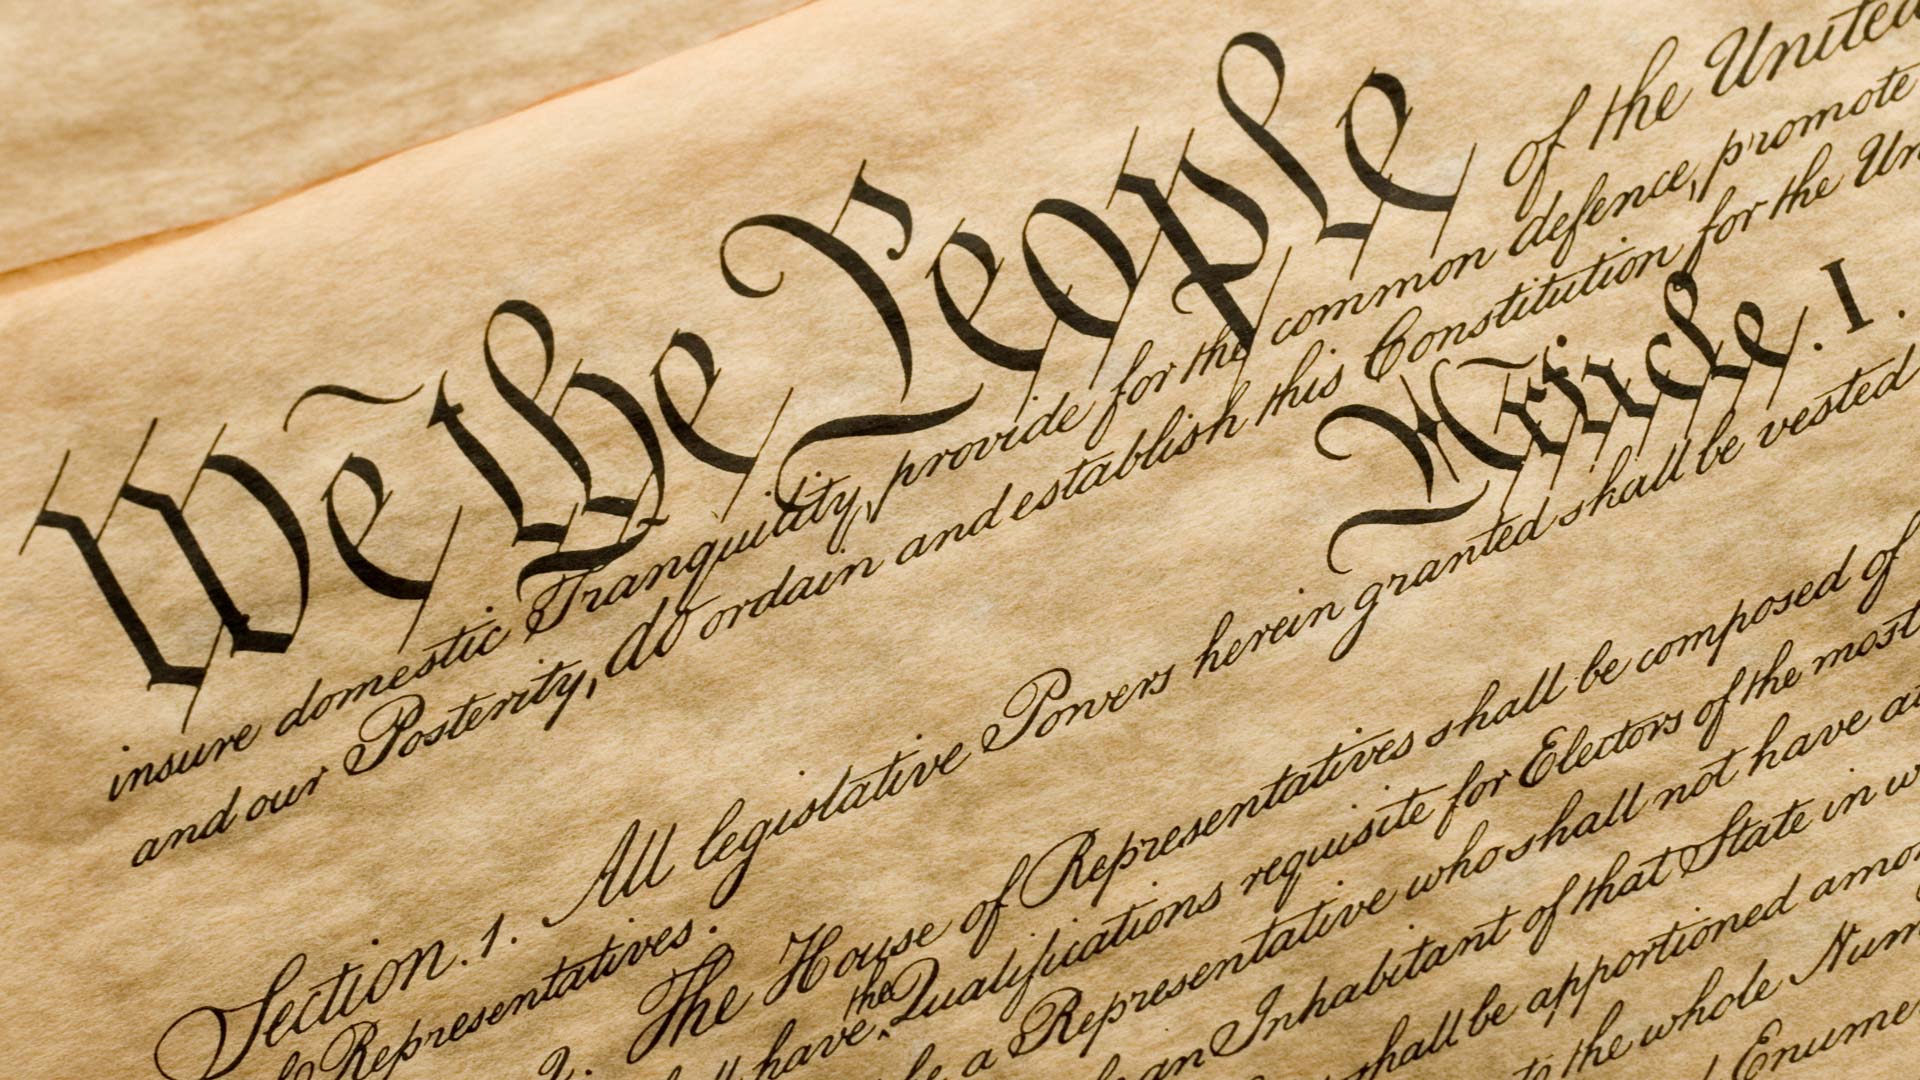 We the People of the United
insure domestic Tranquility, provide for the common defence, promote
and our Posterity, do ordain and establish this Constitution for the Un
Article. I.
Section. 1. All legislative Powers herein granted shall be vested
Representatives.
2. The House of Representatives shall be composed of
the
have Qualifications requisite for Electors of the most
be a Representative who shall not have
an Inhabitant of that State in
shall be apportioned amo
to the whole Num
Enume